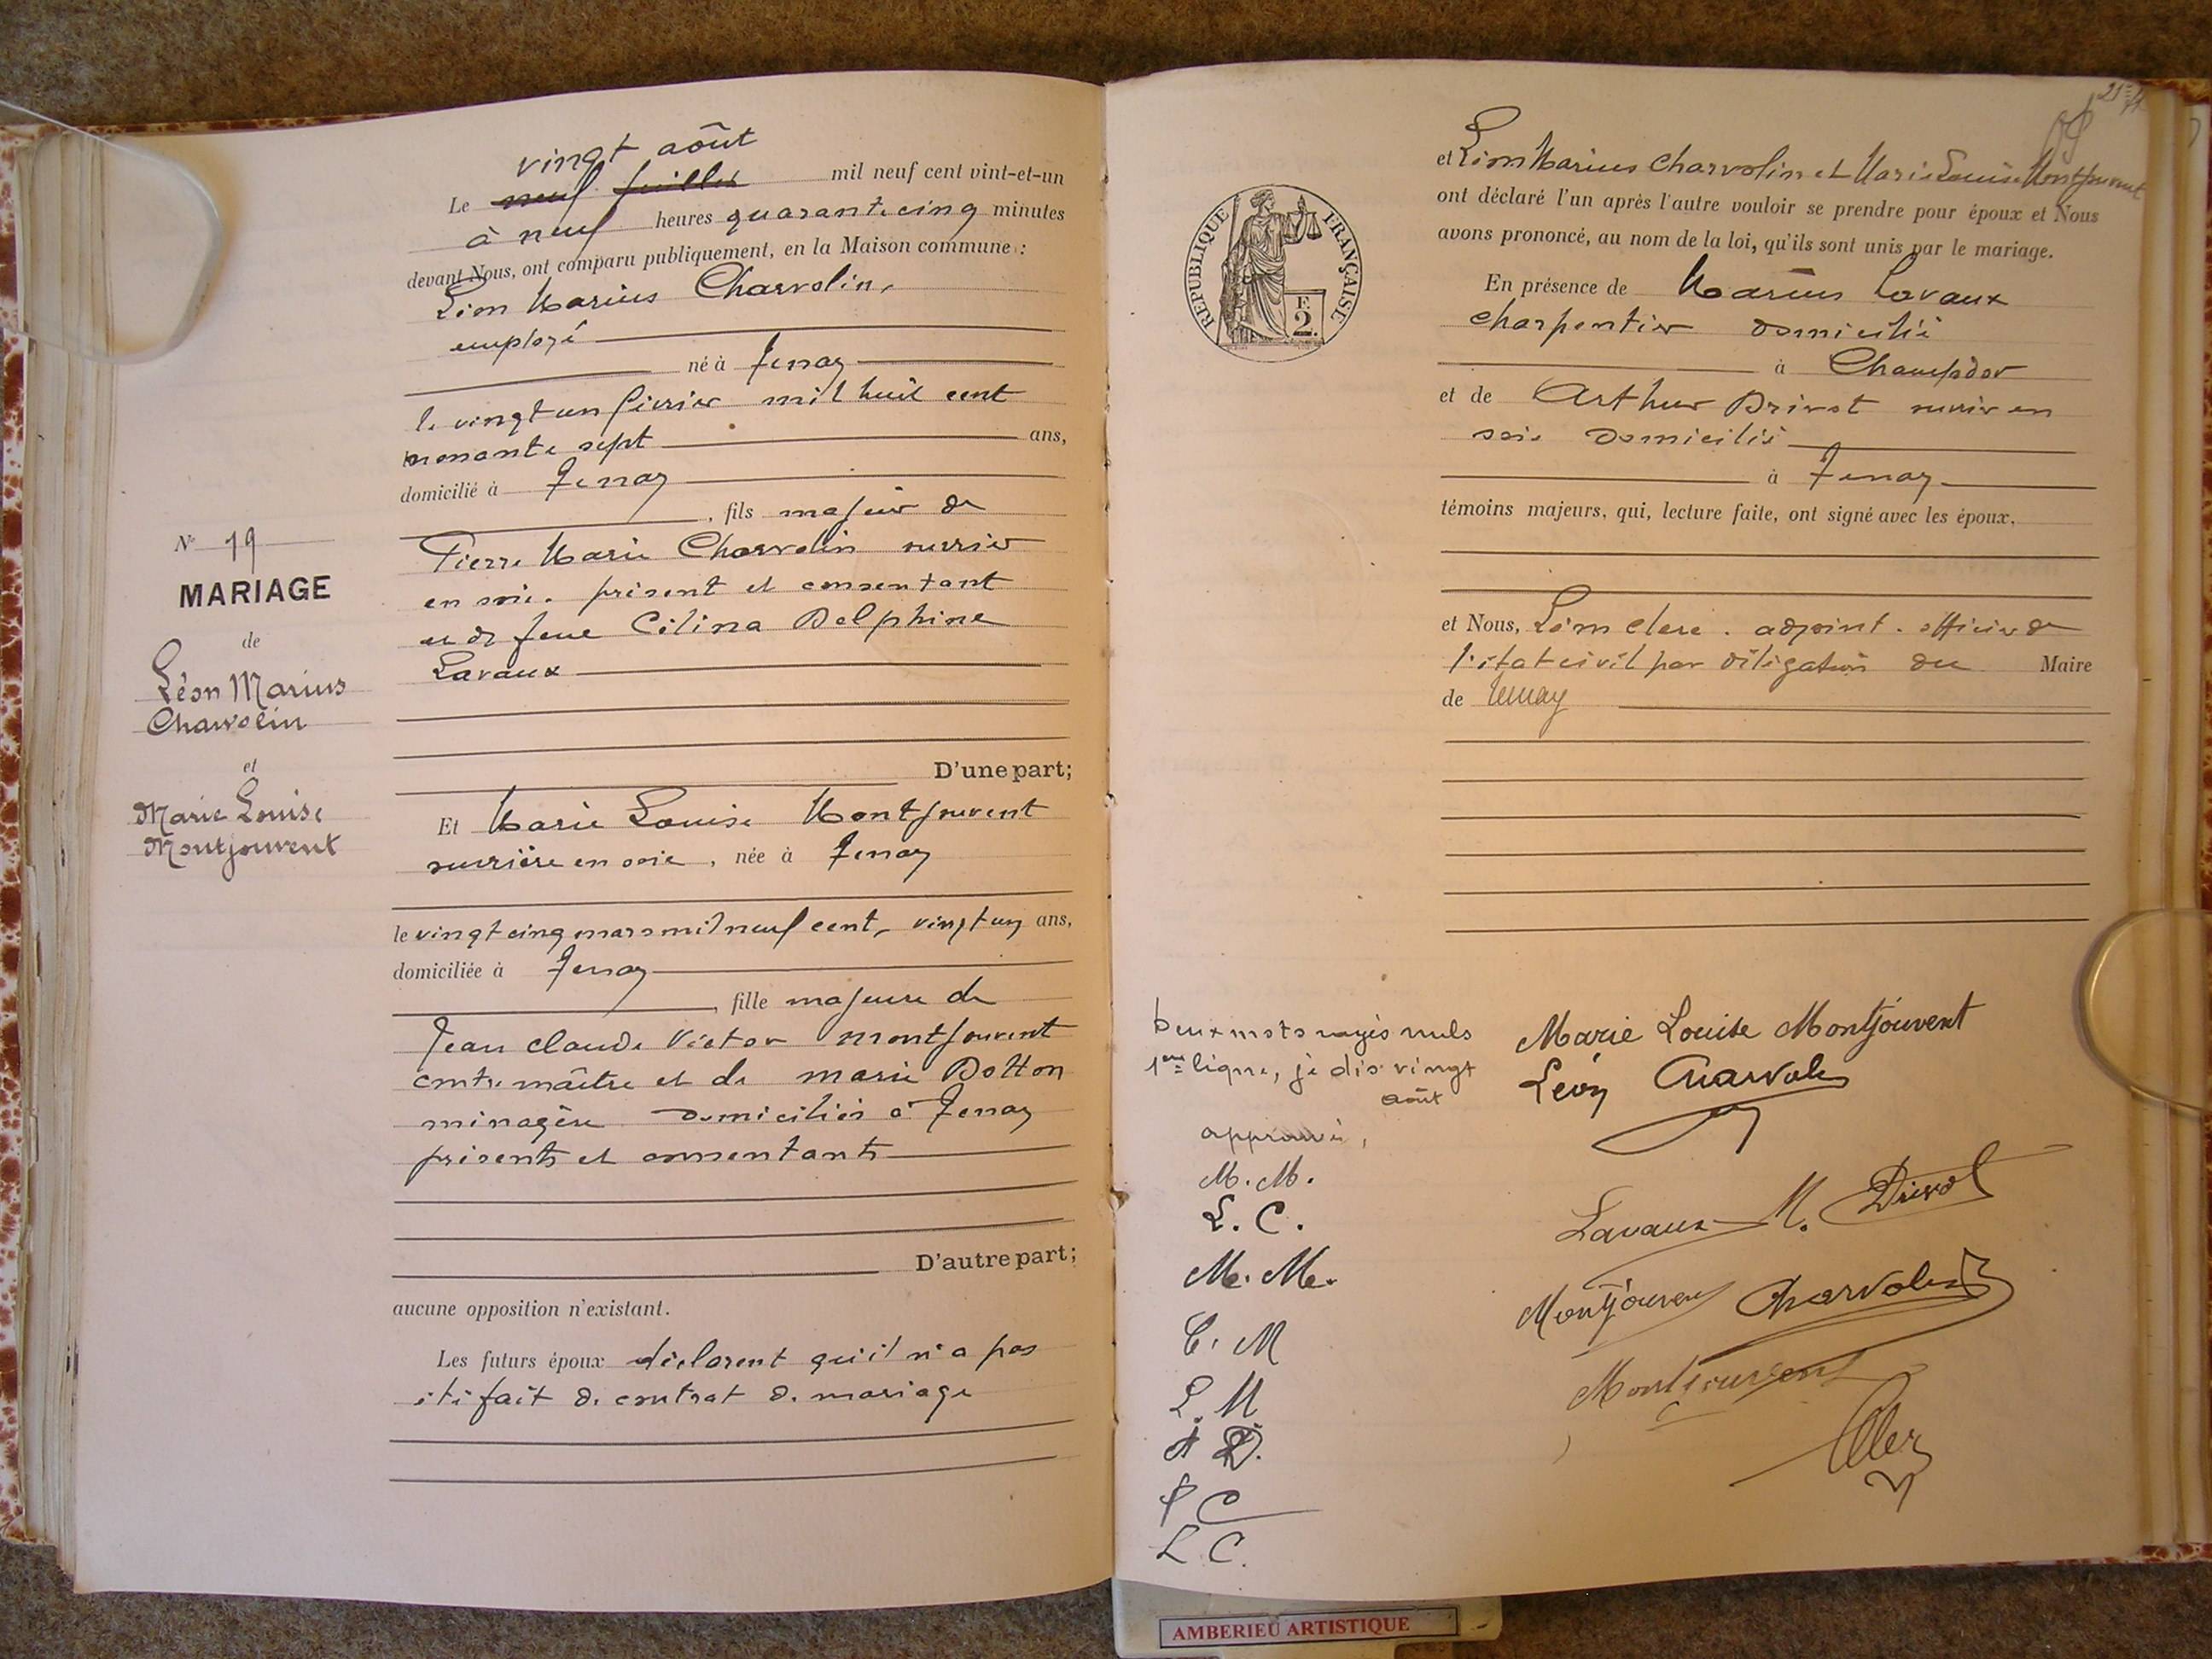 N° 19
MARIAGE
de
Léon Marius
Charvolin
et
Marie Louise
Montjouvent
vingt août
Le neuf juillet mil neuf cent vint-et-un
à neuf heures quarante cinq minutes
devant Nous, ont comparu publiquement, en la Maison commune :
Léon Marius Charvolin,
employé
né à Tenay
le vingt un février mil huit cent
nonante sept ans,
domicilié à Tenay
, fils majeur de
Pierre Marie Charvolin ouvrier
en soie. présent et consentant
et de feue Célina Delphine
Lavaux
D'une part;
Et Marie Louise Montjouvent
ouvrière en soie, née à Tenay
le vingt cinq mars mil neuf cent, vingt un ans,
domiciliée à Tenay
, fille majeure de
Jean claude Victor montjouvent
contremaître et de marie Dotton
ménagère domiciliés à Tenay
présents et consentants
D'autre part;
aucune opposition n'existant.
Les futurs époux déclarent qu'il n'a pas
été fait de contrat de mariage
et Léon Marius Charvolin et Marie Louise Montjouvent
ont déclaré l'un après l'autre vouloir se prendre pour époux et Nous
avons prononcé, au nom de la loi, qu'ils sont unis par le mariage.
RÉPUBLIQUE FRANÇAISE
F.
2
En présence de Marius Lavaux
charpentier domicilié
à Champdor
et de Arthur Drivot ouvrier en
soie domicilié
à Tenay
témoins majeurs, qui, lecture faite, ont signé avec les époux.
et Nous, Léon Clerc. adjoint. officier de
l'état civil par délégation du Maire
de Tenay
Deux mots rayés nuls
1ère ligne, je dis vingt
août
approuvé,
M. M.
L. C.
M. M.
C. M
L. M
A D.
P C
L C.
Marie Louise Montjouvent
Léon Charvolin
Lavaux M. Drivot
Montjouvent Charvolin
Montjouvent
AMBERIEU ARTISTIQUE